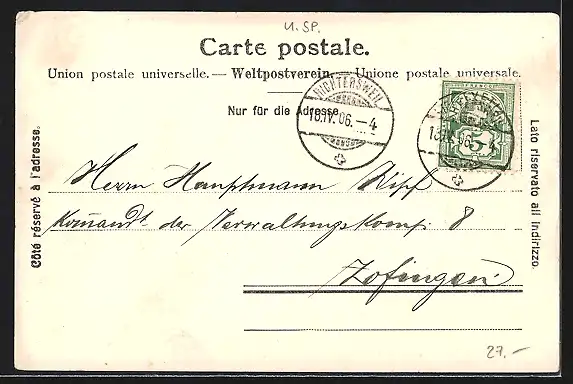 U.SP.
Carte postale.
Union postale universelle. — Weltpostverein. — Unione postale universale.
Nur für die Adresse.
RICHTERSWEIL
18.IV.06.–4
HELVETIA
5
18.IV.06.–4
Côté réservé à l'adresse.
Lato riservato all'indirizzo.
Herrn Hauptmann
Komandt. der Verwaltungskomp. 8
Zofingen
27.–